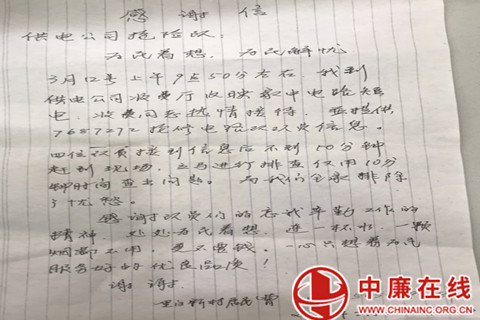 感谢信
供电公司抢险队:
为民着想,为民解忧
3月12号上午9点50分左右,我到
供电公司收费厅反映家中电路短
电,收费同志热情接待,并提供
7687272抢修电话及队员信息。
四位队员接到信息后不到10分钟
赶到现场,立马进行排查仅用10分
钟时间查出问题。为我们全家排除
了忧愁。
感谢队员们的忘我辛勤工作的
精神,处处为民着想,连一杯水,一颗
烟都不用,更不要钱。一心只想着为民
服务好的优良品质!
谢谢
新村居民
中廉在线
WWW.CHINAINC.ORG.CN